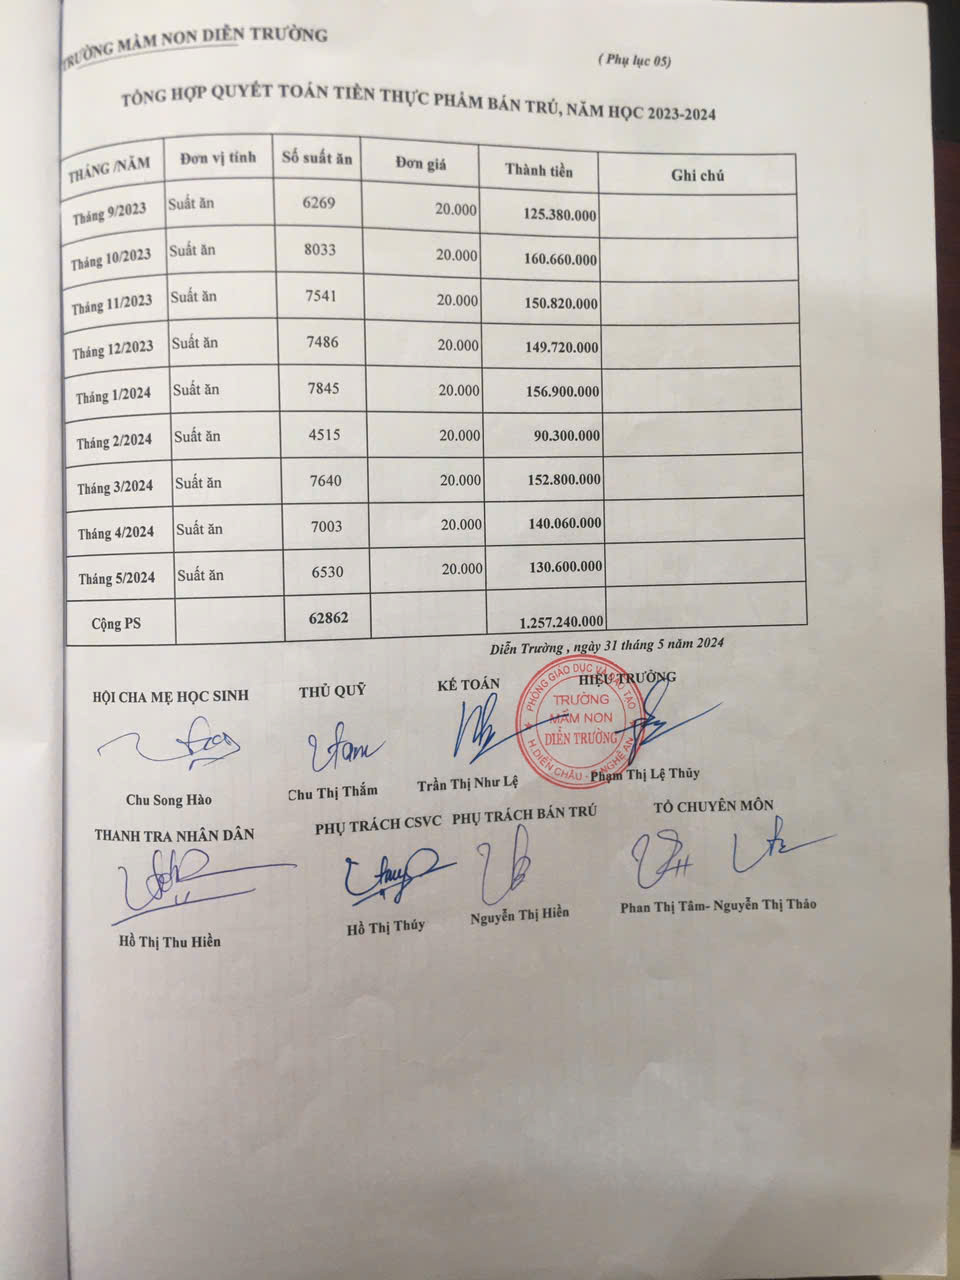 TRƯỜNG MẦM NON DIỄN TRƯỜNG
( Phụ lục 05)
TỔNG HỢP QUYẾT TOÁN TIỀN THỰC PHẨM BÁN TRÚ, NĂM HỌC 2023-2024
THÁNG /NĂM Đơn vị tính Số suất ăn Đơn giá Thành tiền Ghi chú
Tháng 9/2023 Suất ăn 6269 20.000 125.380.000
Tháng 10/2023 Suất ăn 8033 20.000 160.660.000
Tháng 11/2023 Suất ăn 7541 20.000 150.820.000
Tháng 12/2023 Suất ăn 7486 20.000 149.720.000
Tháng 1/2024 Suất ăn 7845 20.000 156.900.000
Tháng 2/2024 Suất ăn 4515 20.000 90.300.000
Tháng 3/2024 Suất ăn 7640 20.000 152.800.000
Tháng 4/2024 Suất ăn 7003 20.000 140.060.000
Tháng 5/2024 Suất ăn 6530 20.000 130.600.000
Cộng PS 62862 1.257.240.000
Diễn Trường , ngày 31 tháng 5 năm 2024
HỘI CHA MẸ HỌC SINH THỦ QUỸ KẾ TOÁN HIỆU TRƯỞNG
PHÒNG GIÁO DỤC VÀ ĐÀO TẠO
TRƯỜNG
MẦM NON
DIỄN TRƯỜNG
H.DIỄN CHÂU - T.NGHỆ AN
Chu Song Hào Chu Thị Thắm Trần Thị Như Lệ Phạm Thị Lệ Thủy
THANH TRA NHÂN DÂN PHỤ TRÁCH CSVC PHỤ TRÁCH BÁN TRÚ TỔ CHUYÊN MÔN
Hồ Thị Thu Hiền Hồ Thị Thúy Nguyễn Thị Hiền Phan Thị Tâm- Nguyễn Thị Thảo